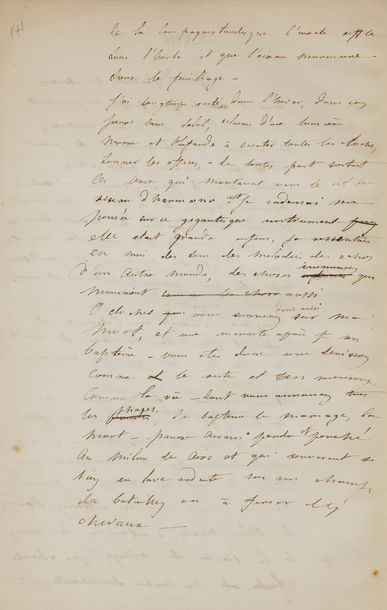 141
de la campagne tandis que l'insecte siffle
dans l'herbe et que l'oiseau murmure
sous le feuillage –
J'ai longtemps resté dans l'hiver, dans ces
jours sans soleil, éclairés d'une lumière
morne et blafarde à écouter toutes les cloches
sonner les offices, – de toutes parts sortaient
les voix qui montaient vers le ciel en
réseau d'harmonie et je cadençais ma
pensée sur ce gigantesque instrument
elle était grande infinie, je ressentais
en moi des sons des mélodies des échos
d'un autre monde, des choses immenses qui
mouraient aussi
O cloches vous sonnerez donc aussi sur ma
mort, et une minute après pour un
baptême – vous êtes donc une dérision
comme le reste et un mensonge
comme la vie – dont vous annoncez tous
les phases le baptême le mariage, la
mort – pauvre airain perdu et
au milieu des airs et qui servirait si
bien en lave ardente sur un champ
de bataille ou à ferrer les
chevaux –